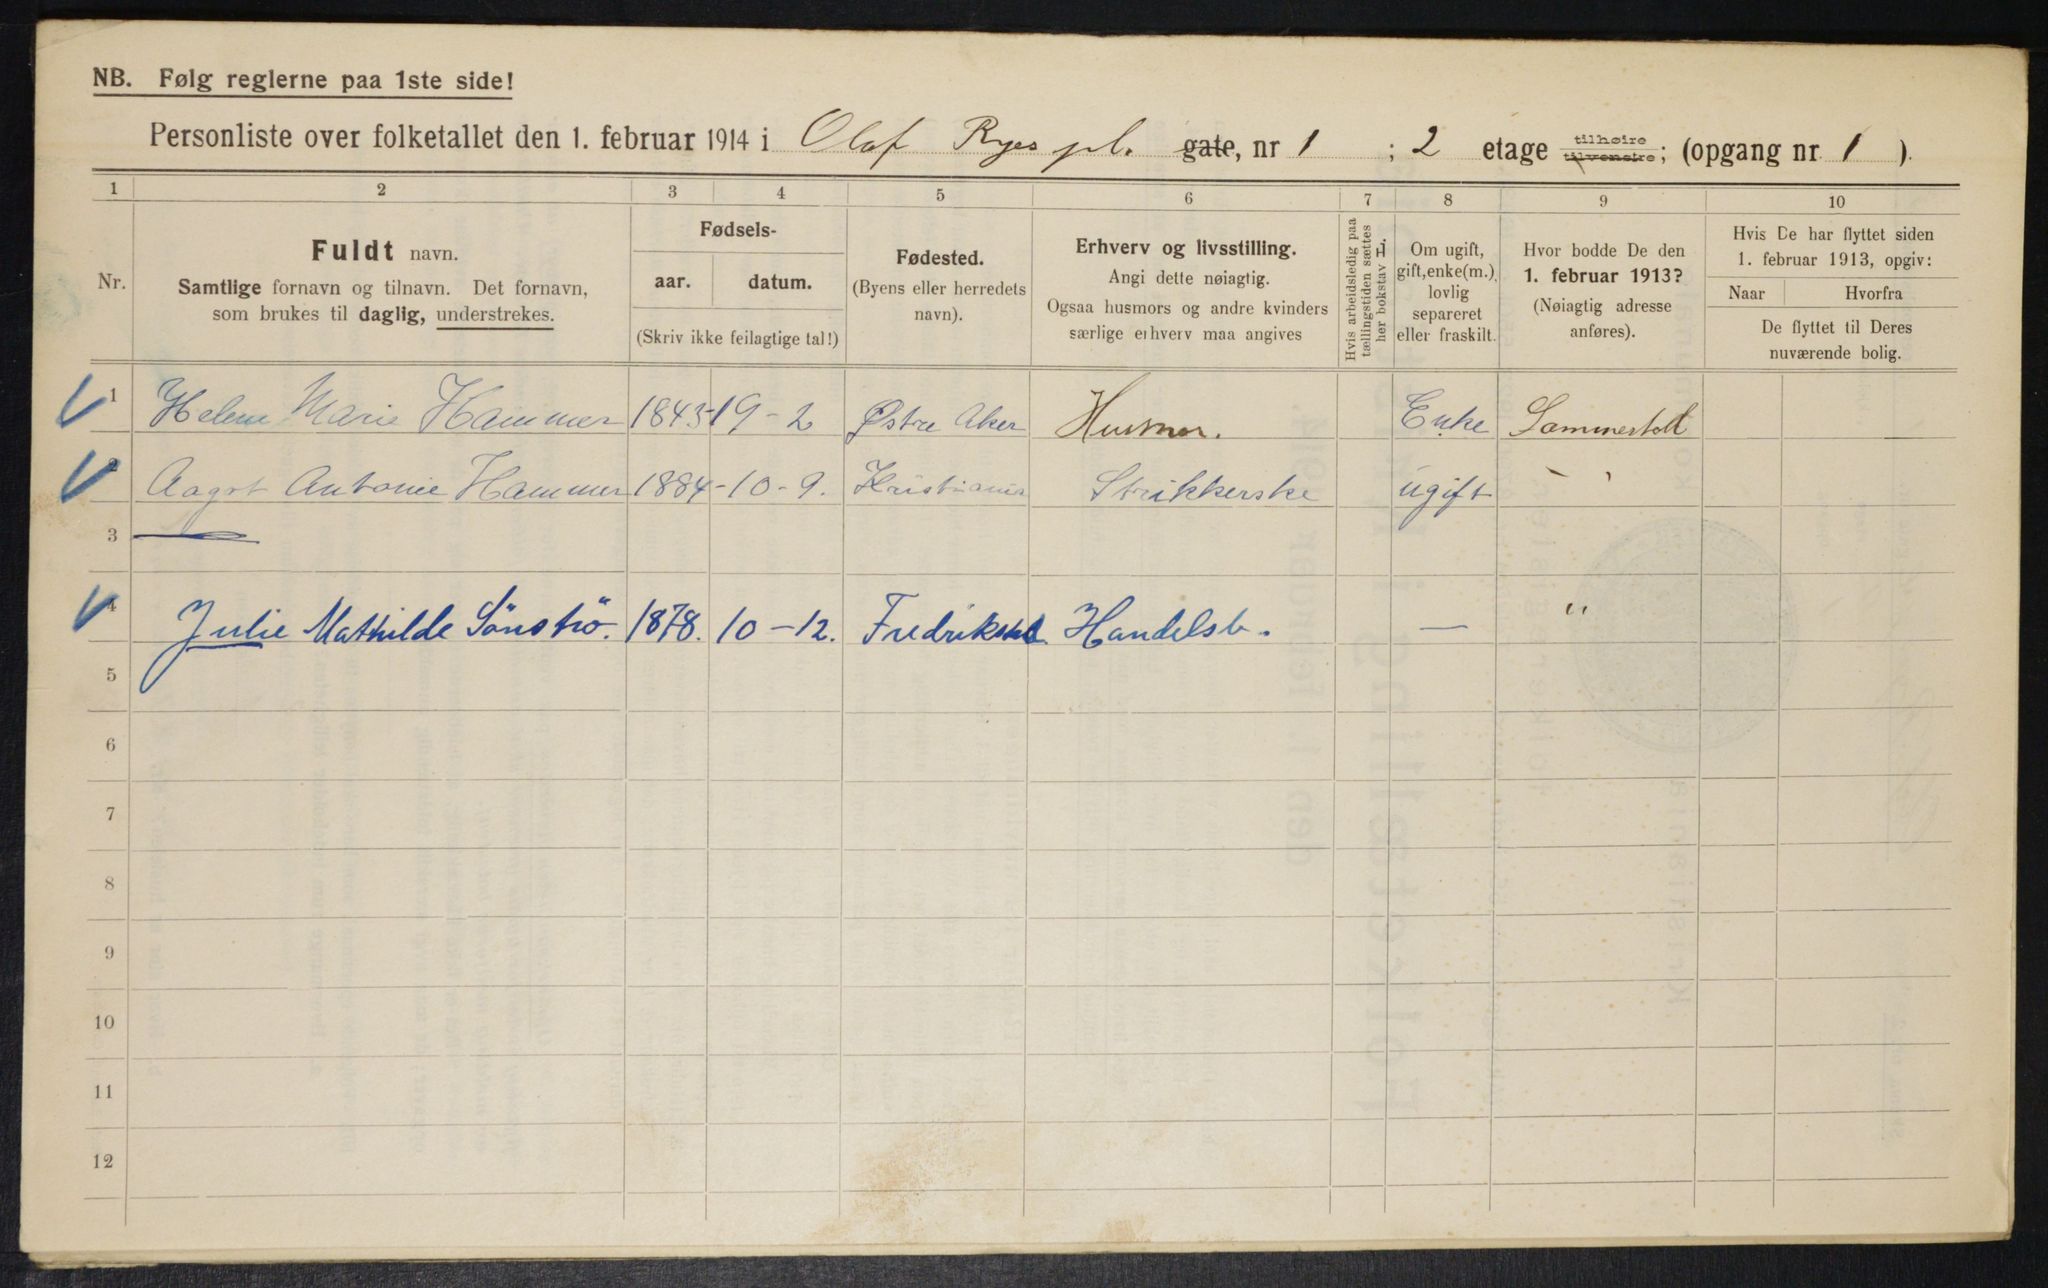 NB. Følg reglerne paa 1ste side!
Personliste over folketallet den 1. februar 1914 i Olaf Ryes pl. gate, nr 1 ; 2 etage tilhøire tilvenstre; (opgang nr. 1 ).
1 2 3 4 5 6 7 8 9 10
Nr.
Fuldt navn.
Samtlige fornavn og tilnavn. Det fornavn,
som brukes til daglig, understrekes.
Fødsels-
aar. datum.
(Skriv ikke feilagtige tal!)
Fødested.
(Byens eller herredets
navn).
Erhverv og livsstilling.
Angi dette nøiagtig.
Ogsaa husmors og andre kvinders
særlige erhverv maa angives
Hvis arbeidsledig paa
tællingstiden sættes
her bokstav L
Om ugift,
gift, enke(m.),
lovlig
separeret
eller fraskilt.
Hvor bodde De den
1. februar 1913?
(Nøiagtig adresse
anføres).
Hvis De har flyttet siden
1. februar 1913, opgiv:
Naar Hvorfra
De flyttet til Deres
nuværende bolig.
1 Helene Marie Hammer 1843 19-2 Østre Aker Husmor. Enke Sammested
2 Aagot Antonie Hammer 1884 -10-9. Kristiania Strikkerske ugift " "
3
4 Julie Mathilde Sönströ. 1878. 10-12. Fredrikstad Handelsb. — "
5
6
7
8
9
10
11
12